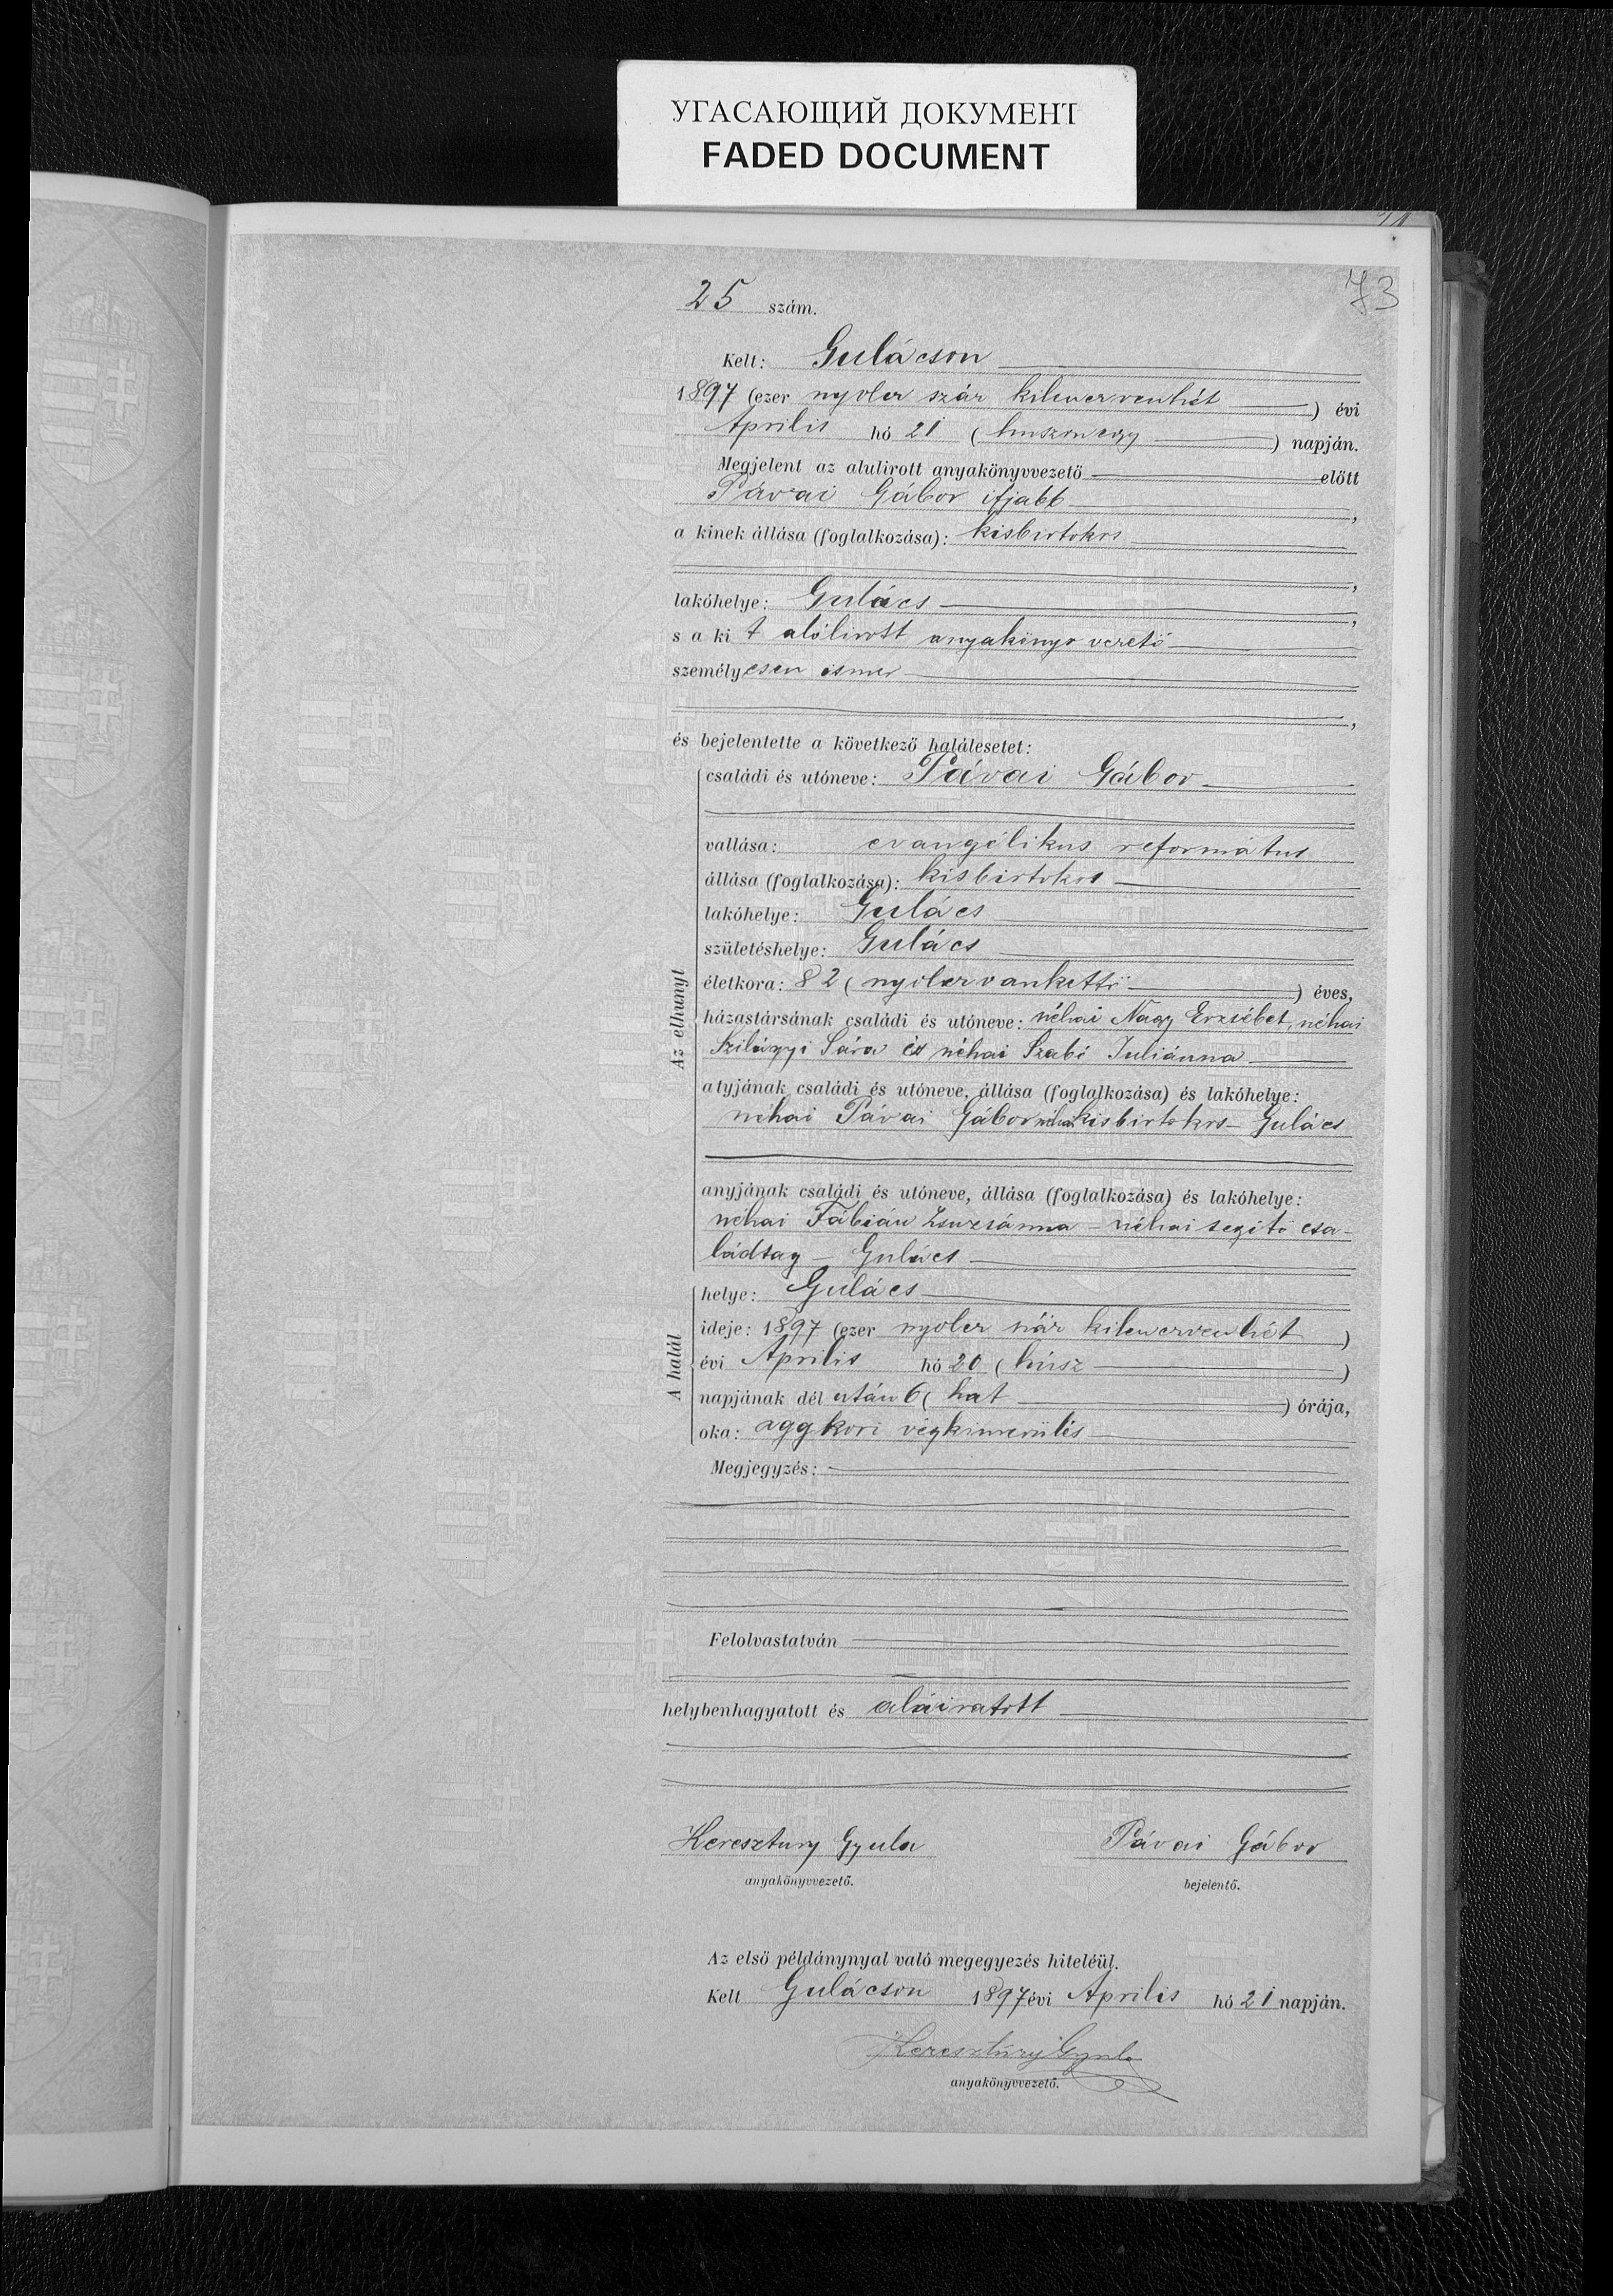 УГАСАЮЩИЙ ДОКУМЕНТ
FADED DOCUMENT
73
25 szám.
Kelt: Gulácson
1897 (ezer nyolcz száz kilenczvenhét) évi
Április hó 21 (huszonegy) napján.
Megjelent az alulirott anyakönyvvezető előtt
Pávai Gábor ifjabb,
a kinek állása (foglalkozása): kisbirtokos
,
lakóhelye: Gulács,
s a ki t alólirott anyakönyv vezető
személyesen ismer
,
és bejelentette a következő halálesetet:
Az elhunyt
családi és utóneve: Pávai Gábor
vallása: evangélikus református
állása (foglalkozása): kisbirtokos
lakóhelye: Gulács
születéshelye: Gulács
életkora: 82 (nyolczvankettő) éves,
házastársának családi és utóneve: néhai Nagy Erzsébet, néhai
Szilágyi Sára és néhai Szabó Juliánna
atyjának családi és utóneve, állása (foglalkozása) és lakóhelye:
néhai Pávai Gábor néhai kisbirtokos – Gulács
anyjának családi és utóneve, állása (foglalkozása) és lakóhelye:
néhai Fábián Zsuzsánna – néhai segitő csa-
ládtag – Gulács
A halál
helye: Gulács
ideje: 1897 (ezer nyolcz száz kilenczvenhét)
évi Április hó 20 (húsz)
napjának dél után 6 (hat) órája,
oka: aggkori végkimerülés
Megjegyzés:
Felolvastatván
helybenhagyatott és aláiratott
Keresztury Gyula Pávai Gábor
anyakönyvvezető. bejelentő.
Az első példánynyal való megegyezés hiteléül.
Kelt Gulácson 1897 évi Április hó 21 napján.
Keresztúry Gyula
anyakönyvvezető.